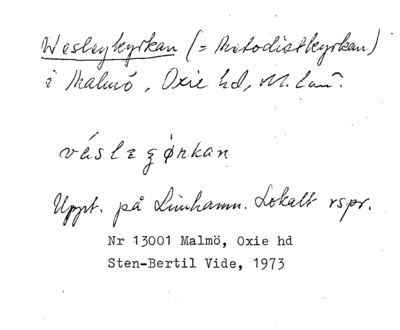 Wesleykyrkan (= Metodistkyrkan)
i Malmö, Oxie hd, M. län.
Uppt. på Limhamn. Lokalt rspr.
Nr 13001 Malmö, Oxie hd
Sten-Bertil Vide, 1973